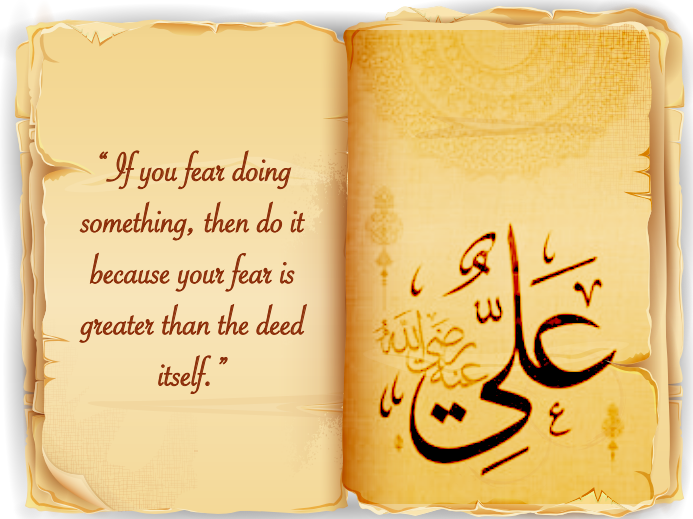 “ If you fear doing
something, then do it
because your fear is
greater than the deed
itself. ”
عَلِيٌّ
رضي الله عنه